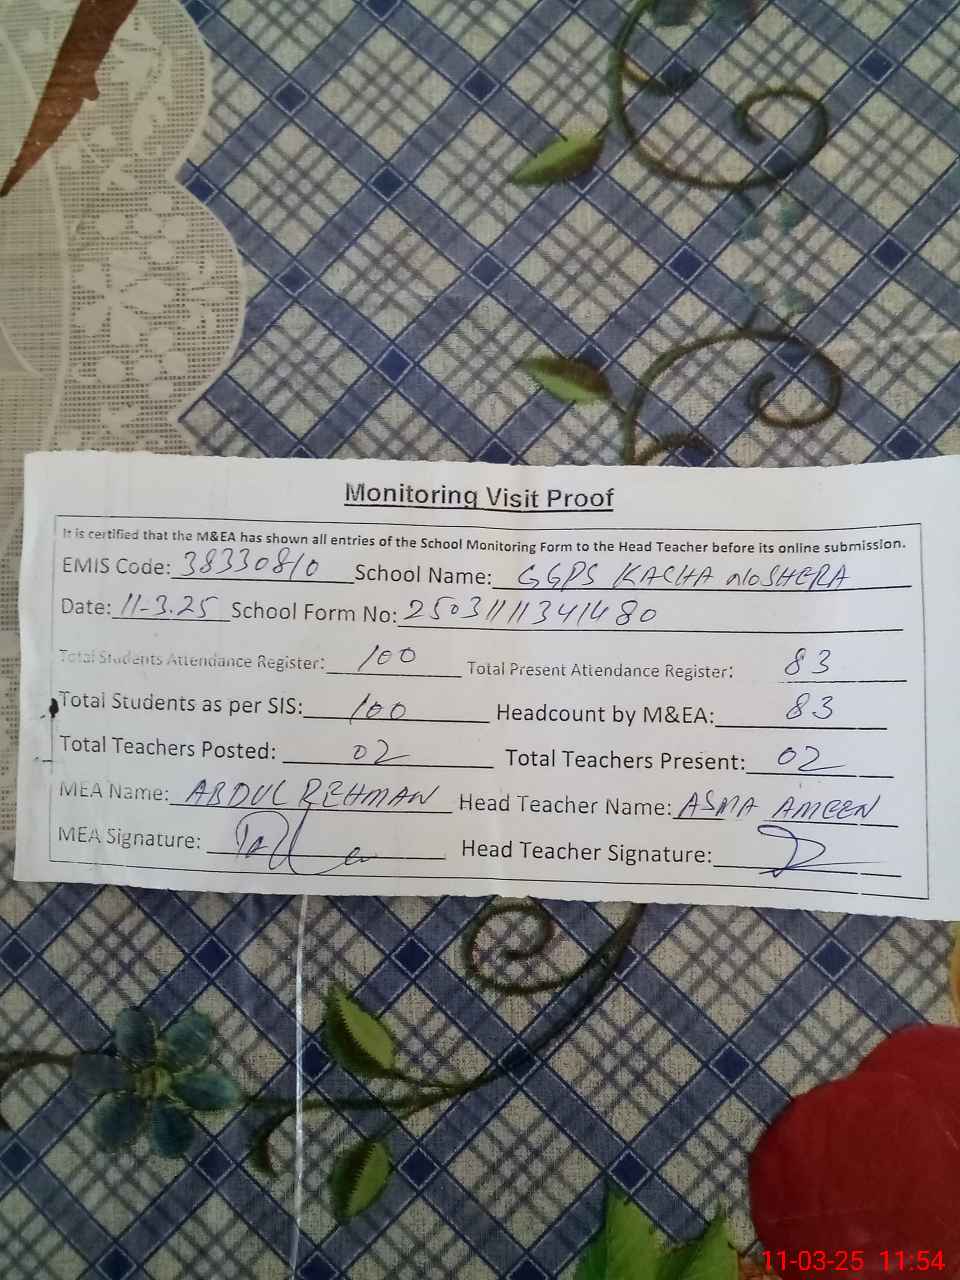 Monitoring Visit Proof
It is certified that the M&EA has shown all entries of the School Monitoring Form to the Head Teacher before its online submission.
EMIS Code: 38330810 School Name: GGPS KACHA NOSHERA
Date: 11-3.25 School Form No: 2503111341480
Total Students Attendance Register: 100 Total Present Attendance Register: 83
Total Students as per SIS: 100 Headcount by M&EA: 83
Total Teachers Posted: 02 Total Teachers Present: 02
MEA Name: ABDUL REHMAN Head Teacher Name: ASMA AMEEN
MEA Signature: Head Teacher Signature:
11-03-25 11:54